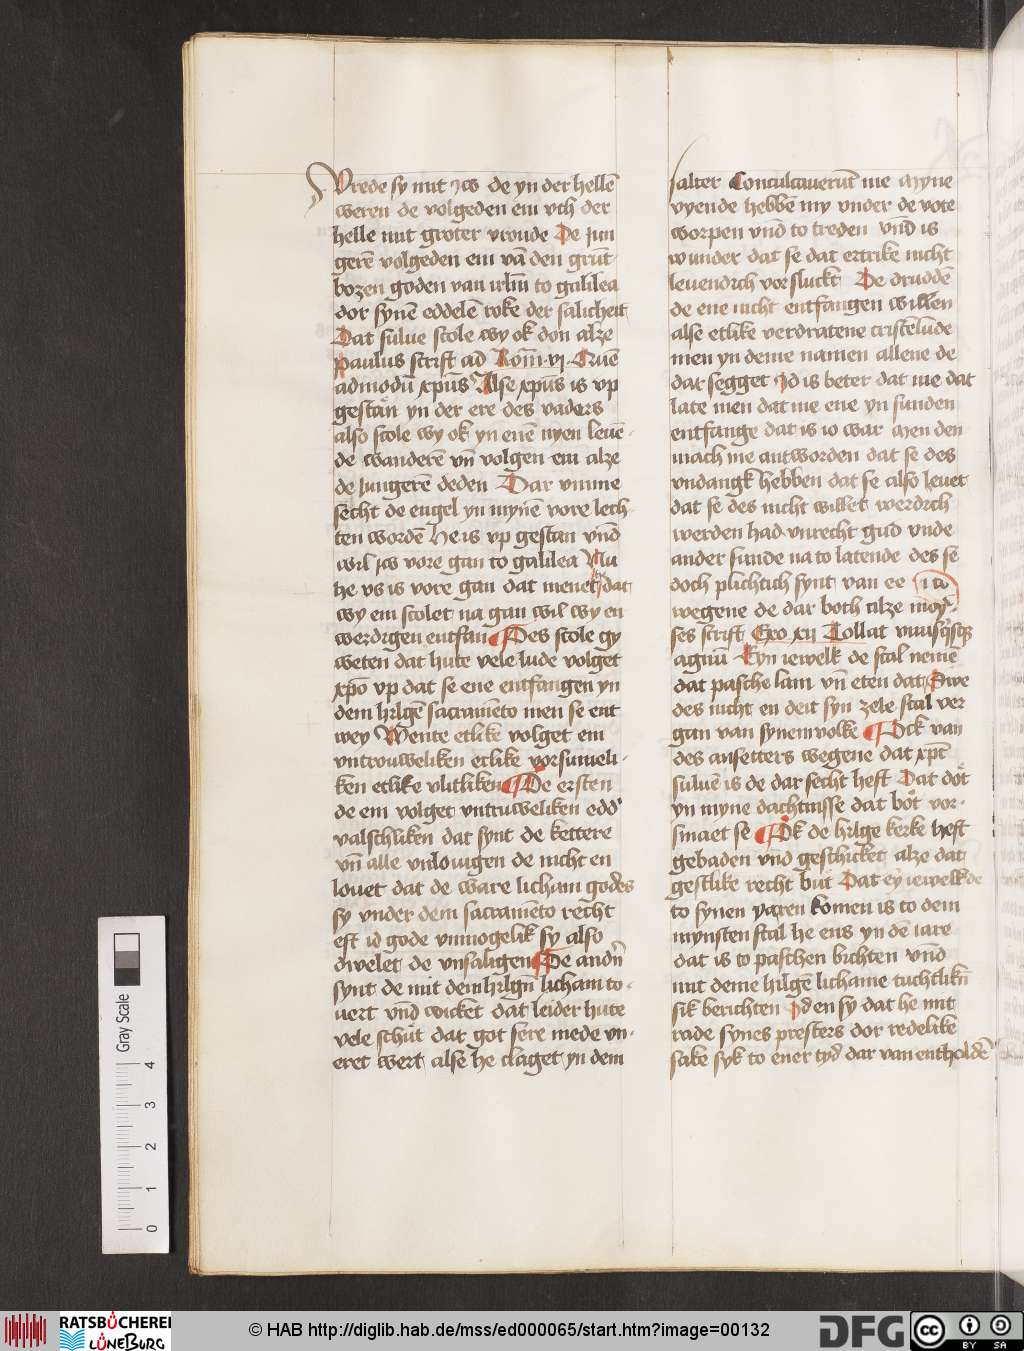 Vrede sy mit iw de yn der hellē
weren de volgeden em vth der
helle mit groter vroude De jun
gerē volgeden em vā den grūt
bozen goden van irlm̄ to galilea
dor synē eddelē roke der salicheit
Dat sulue scole wy ok don alze
paulus scrift ad Rom̄ vj Quē
admodū xpūs Alse xpūs is vp
gestan yn der ere des vaders
also scole wy ok yn enē nyen leuē
de wanderē vn̄ volgen em alze
de jungerē deden Dar vmme
secht de engel yn mynē vore lech
ten wordē He is vp gestan vn̄d
wil jw vore gan to galilea Nu
he vs is vore gan dat menet dat
wy em scolet na gan wil wy en
werdigen entfan Des scole gy
weten dat hute vele lude volget
xpō vp dat se ene entfangen yn
dem hilgē sacramēto men se ent
wey Wente etlike volget em
vntrouweliken etlike vorsumeli
ken etlike vlitliken De ersten
de em volget vntruweliken edd'
valschliken dat synt de kettere
vn̄ alle vnlouigen de nicht en
louet dat de ware licham godes
sy vnder dem sacramēto recht
eft id gode vnmogelik sy also
dwelet de vnsaligen De andn̄
synt de mit dem hilgn̄ licham to
uert vn̄d wicket dat leider hute
vele schut dat got sere mede vn
eret wert alse he claget yn dem
salter Conculcauerūt me Myne
vyende hebbē my vnder de vote
worpen vn̄d to treden vn̄d is
wunder dat se dat ertrike nicht
leuendich vorsluckt De druddē
de ene nicht entfangen willen
alse etlike verdratene cristēlude
men yn deme namen allene de
dat segget Id is beter dat me dat
late men dat me ene yn sunden
entfange dat is io war Men den
mach me antworden dat se des
vndangk hebben dat se also leuet
dat se des nicht willet werdich
werden had vnrecht gud vnde
ander sunde na to latende des se
doch plichtich synt van ee
wegene de dar both alze moy
ses scrift Exo xij Tollat vnusq̄sq̄
agnū Eyn iewelk de scal nemē
dat pasche lam vn̄ eten dat Swe
des nicht en deit syn zele scal ver
gan van synem volke Ock van
des ansetters wegene dat xp̄c
suluē is de dar secht heft Dat dot
yn myne dachtnisse dat bot vor
smaet se Ok de hilge kerke heft
gebaden vn̄d geschicket alze dat
gestlike recht but Dat ey iewelk de
to synen yaren komen is to dem
mynsten scal he ens yn dē iare
dat is to paschen bichten vn̄d
mit deme hilgē lichame tuchtlikn̄
sik berichten Id en sy dat he mit
rade synes presters dor redelike
sake syk to ener tyd dar van entholdē
Gray Scale
4
3
2
1
0
RATSBÜCHEREI
LÜNEBURG
© HAB http://diglib.hab.de/mss/ed000065/start.htm?image=00132
DFG
cc BY SA